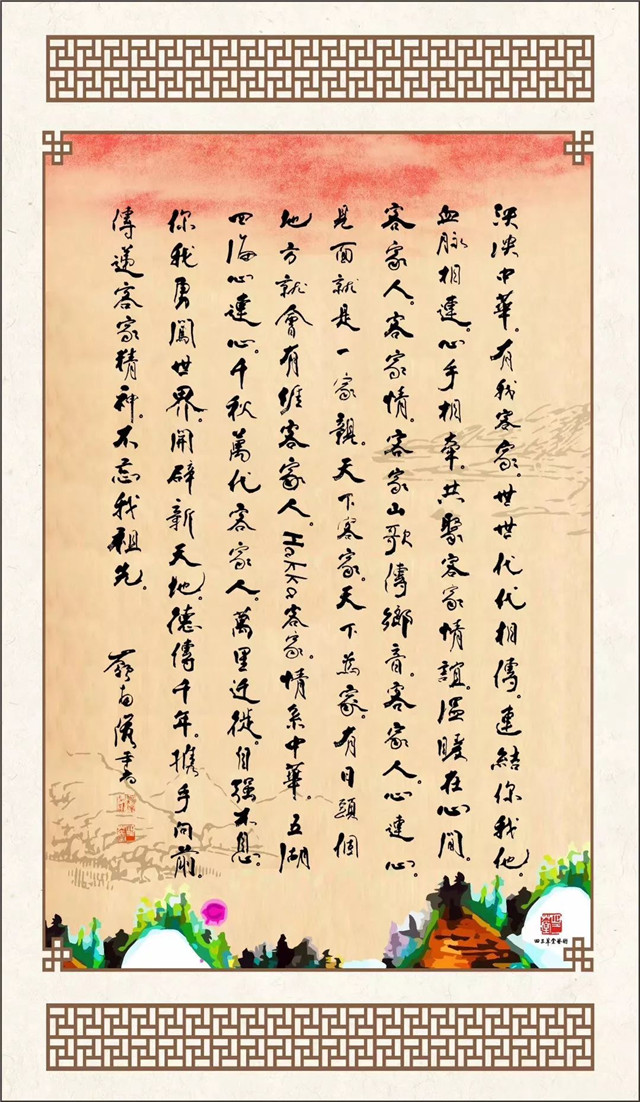 泱泱中華。有我客家。世世代代相傳。連結你我他。
血脉相連。心手相牽。共聚客家情誼。溫暖在心間。
客家人。客家情。客家山歌傳鄉音。客家人心連心。
見面就是一家親。天下客家。天下為家。有日頭個
地方就會有捱客家人。Hakka客家。情系中華。五湖
四海心連心。千秋萬代客家人。萬里迁徙。自强不息。
你我勇闖世界。開辟新天地。德傳千年。携手向前。
傳遞客家精神。不忘我祖先。
嶺南